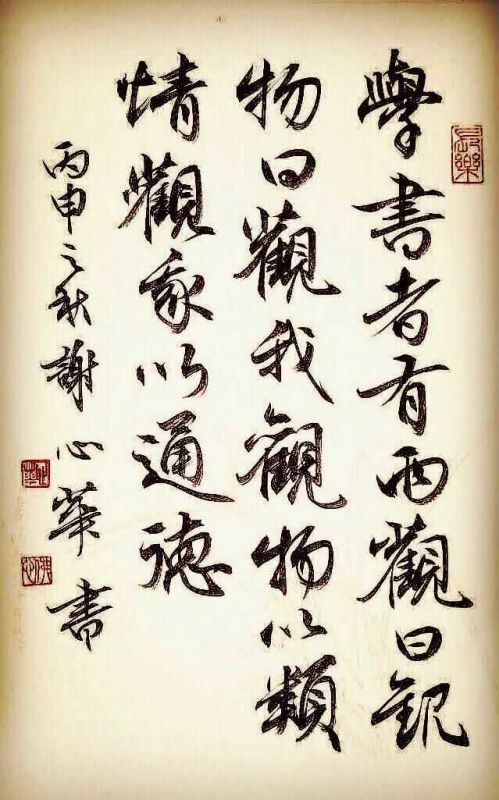 學書者有兩觀曰觀
物曰觀我觀物以類
情觀我以通德
丙申之秋謝心華書